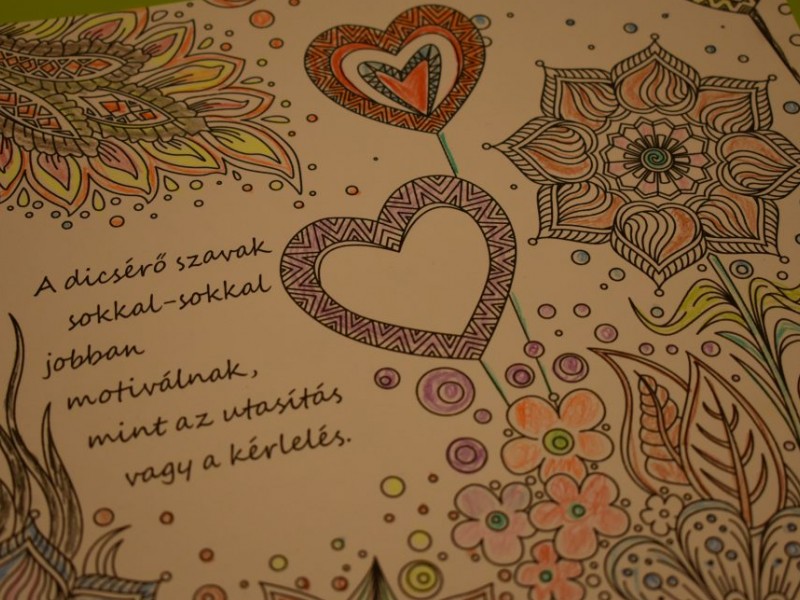 A dicsérő szavak
sokkal-sokkal
jobban
motiválnak,
mint az utasítás
vagy a kérlelés.